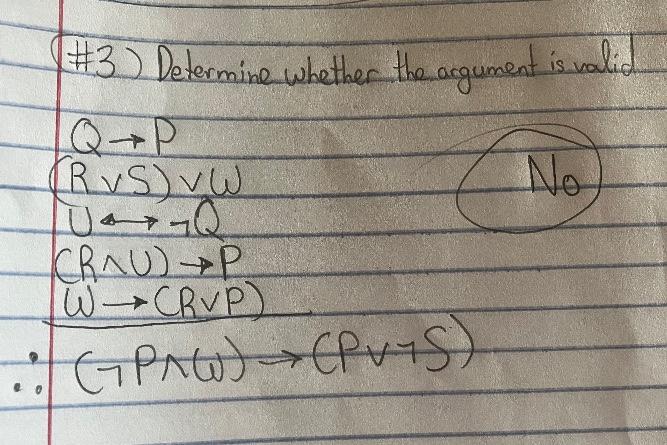 (#3) Determine whether the argument is valid
Q → P
(R ∨ S) ∨ W
No
U ↔ ¬Q
(R ∧ U) → P
W → (R ∨ P)
∴ (¬P ∧ W) → (P ∨ ¬S)